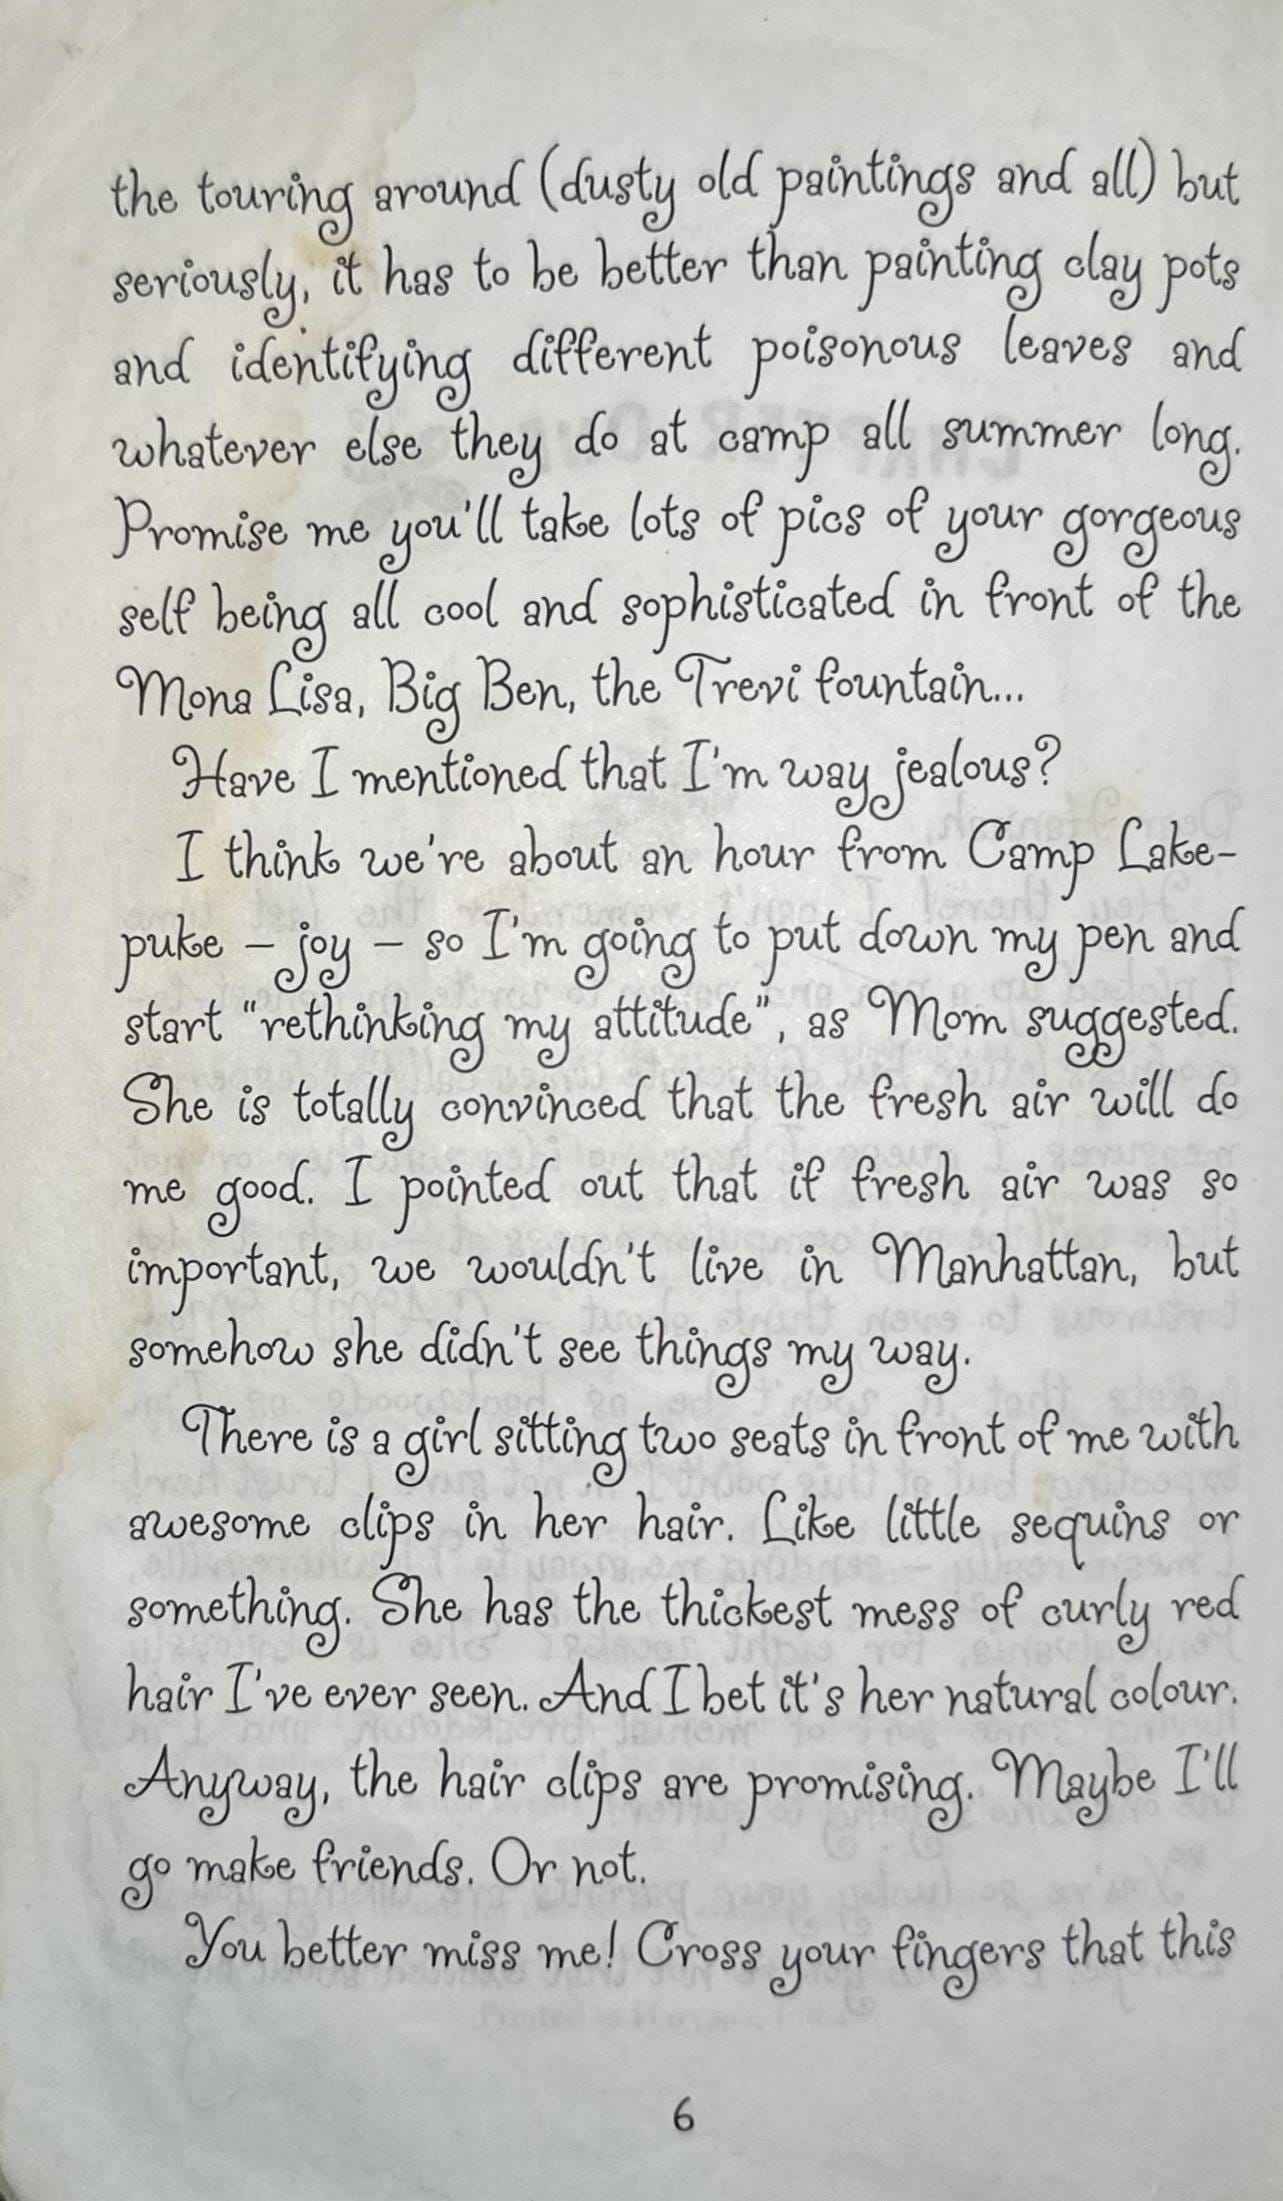 the touring around (dusty old paintings and all) but
seriously, it has to be better than painting clay pots
and identifying different poisonous leaves and
whatever else they do at camp all summer long.
Promise me you'll take lots of pics of your gorgeous
self being all cool and sophisticated in front of the
Mona Lisa, Big Ben, the Trevi fountain...
Have I mentioned that I'm way jealous?
I think we're about an hour from Camp Lake-
puke – joy – so I'm going to put down my pen and
start "rethinking my attitude", as Mom suggested.
She is totally convinced that the fresh air will do
me good. I pointed out that if fresh air was so
important, we wouldn't live in Manhattan, but
somehow she didn't see things my way.
There is a girl sitting two seats in front of me with
awesome clips in her hair. Like little sequins or
something. She has the thickest mess of curly red
hair I've ever seen. And I bet it's her natural colour.
Anyway, the hair clips are promising. Maybe I'll
go make friends. Or not.
You better miss me! Cross your fingers that this
6